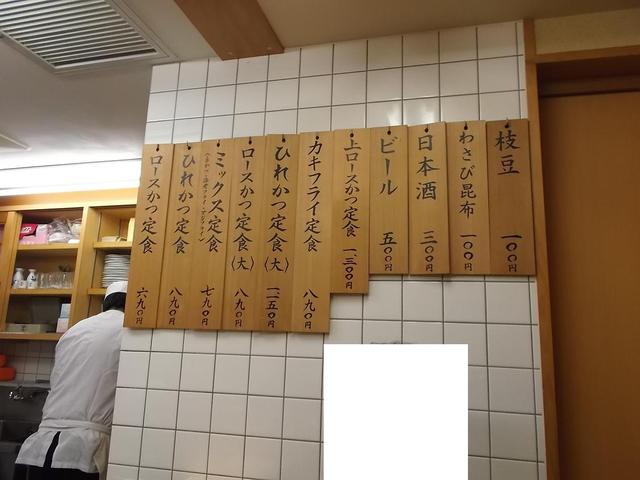 枝豆 一〇〇円
わさび昆布 一〇〇円
日本酒 三〇〇円
ビール 五〇〇円
上ロースかつ定食 一、三〇〇円
カキフライ定食 八九〇円
ひれかつ定食(大) 一、一五〇円
ロースかつ定食(大) 八九〇円
ミックス定食 七九〇円
ひれかつ定食 八九〇円
ロースかつ定食 六九〇円